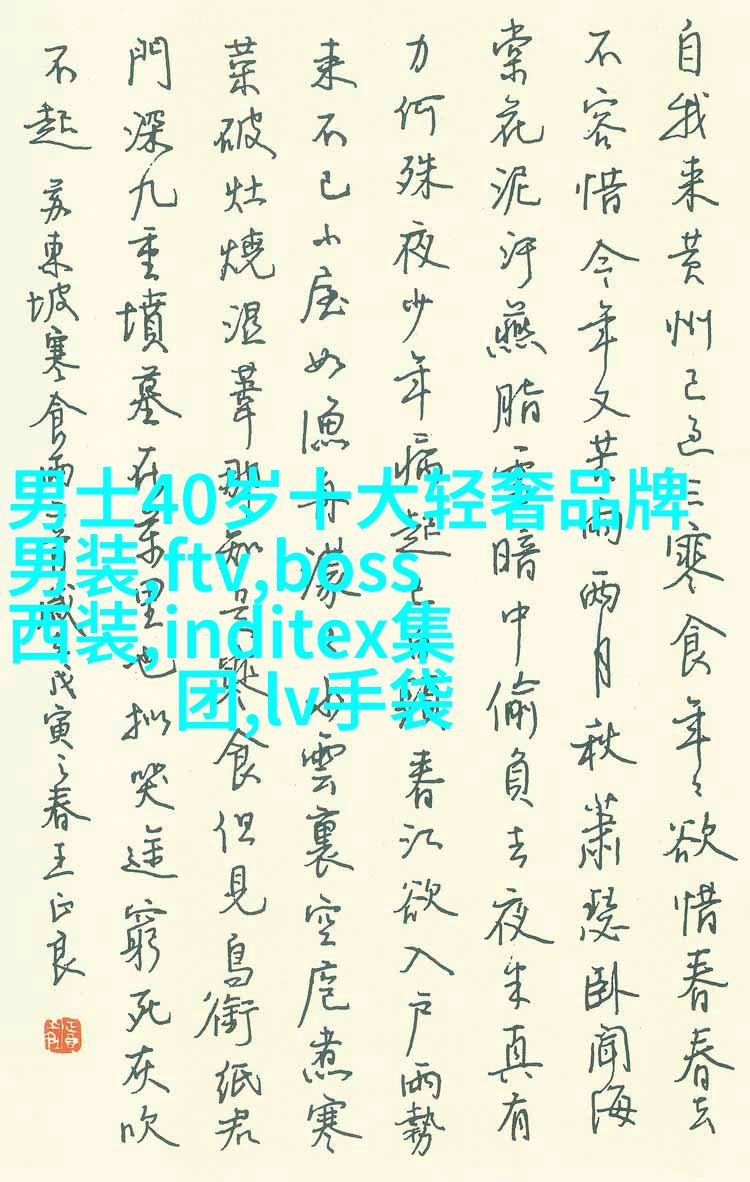 自我来黄州已过三寒食年々欲惜春春去
不容惜今年又苦雨两月秋蕭瑟卧闻海
棠花泥汙燕脂雪暗中偷負去夜半真有
力何殊夜少年病起已春江欲入户雨勢
来不已小屋如漁舟濛々水雲裏空庖煮寒
菜破灶燒湿葦那知是寒食但見烏銜纸君
門深九重墳墓在萬里也拟哭途窮死灰吹
不起 苏東坡寒食雨二首歲戊寅之春王正良
男士40岁十大轻奢品牌
男装,ftv,boss
西装,inditex集
团,lv手袋